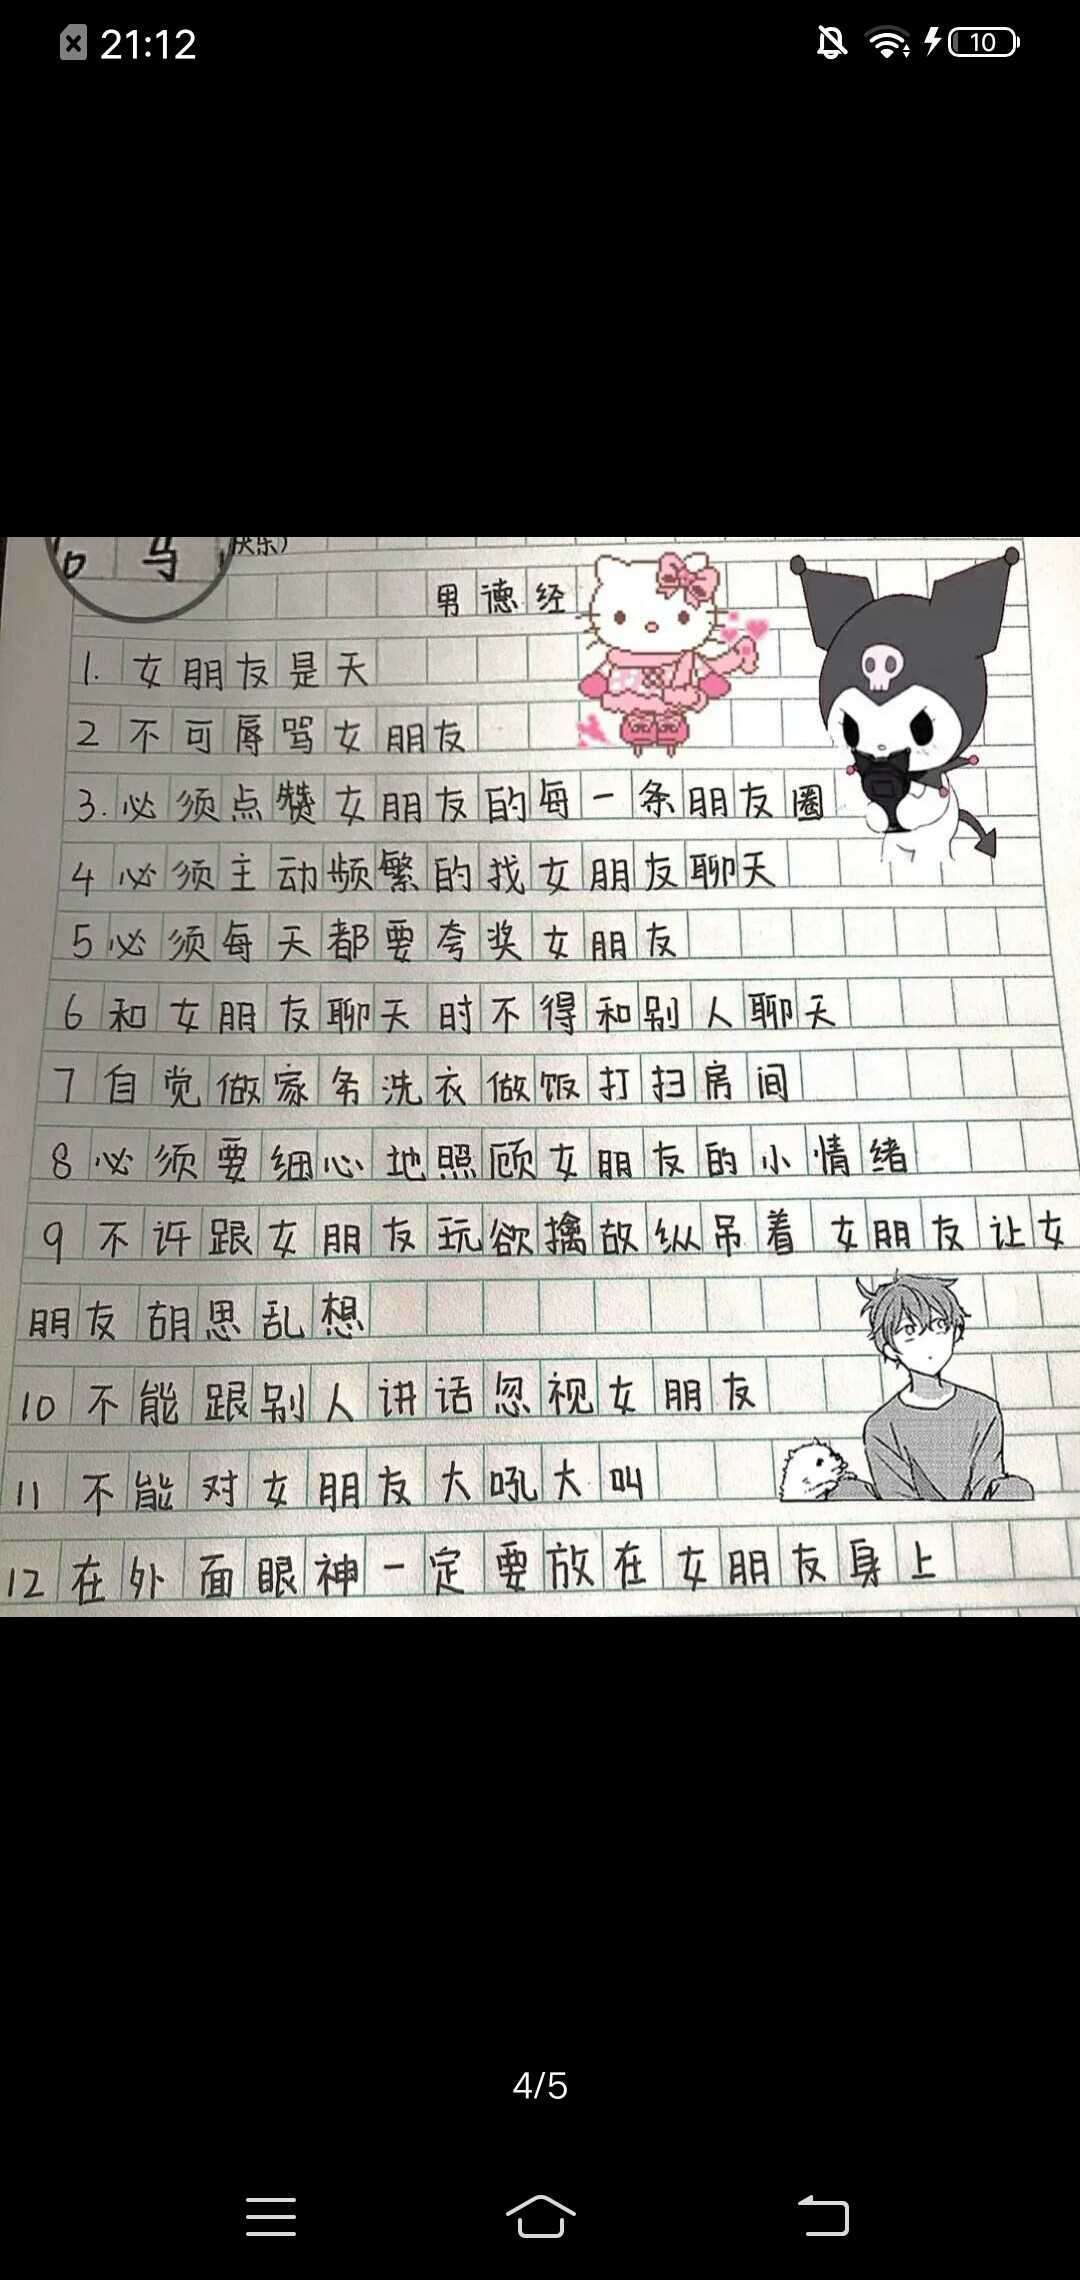 21:12
10
马 快乐)
男德经
1. 女朋友是天
2 不可辱骂女朋友
3. 必须点赞女朋友的每一条朋友圈
4 必须主动频繁的找女朋友聊天
5 必须每天都要夸奖女朋友
6 和女朋友聊天时不得和别人聊天
7 自觉做家务洗衣做饭打扫房间
8 必须要细心地照顾女朋友的小情绪
9 不许跟女朋友玩欲擒故纵吊着女朋友让女
朋友胡思乱想
10 不能跟别人讲话忽视女朋友
11 不能对女朋友大吼大叫
12 在外面眼神一定要放在女朋友身上
4/5